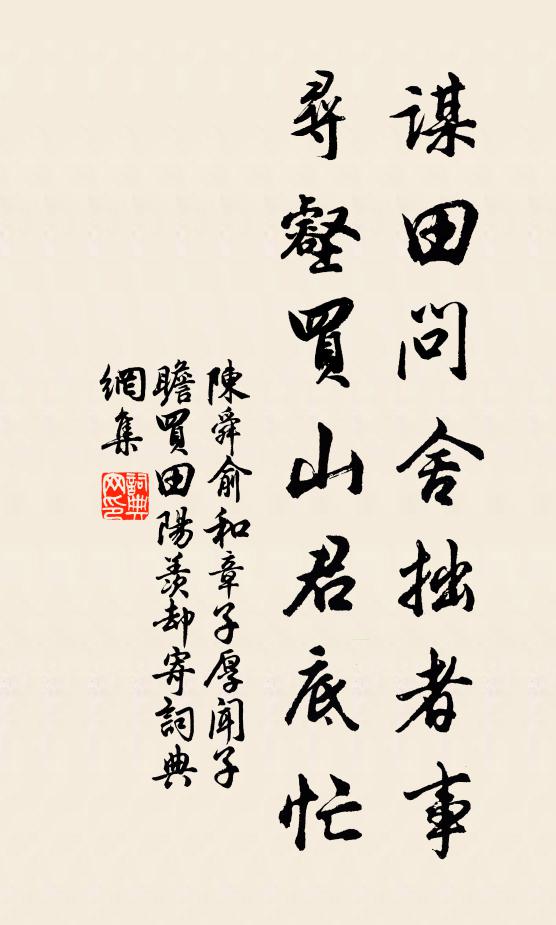 謀田問舍拙者事
尋壑買山君底忙
陳舜俞和章子厚聞子
瞻買田陽羨却寄詞典
網集
詞典
网印